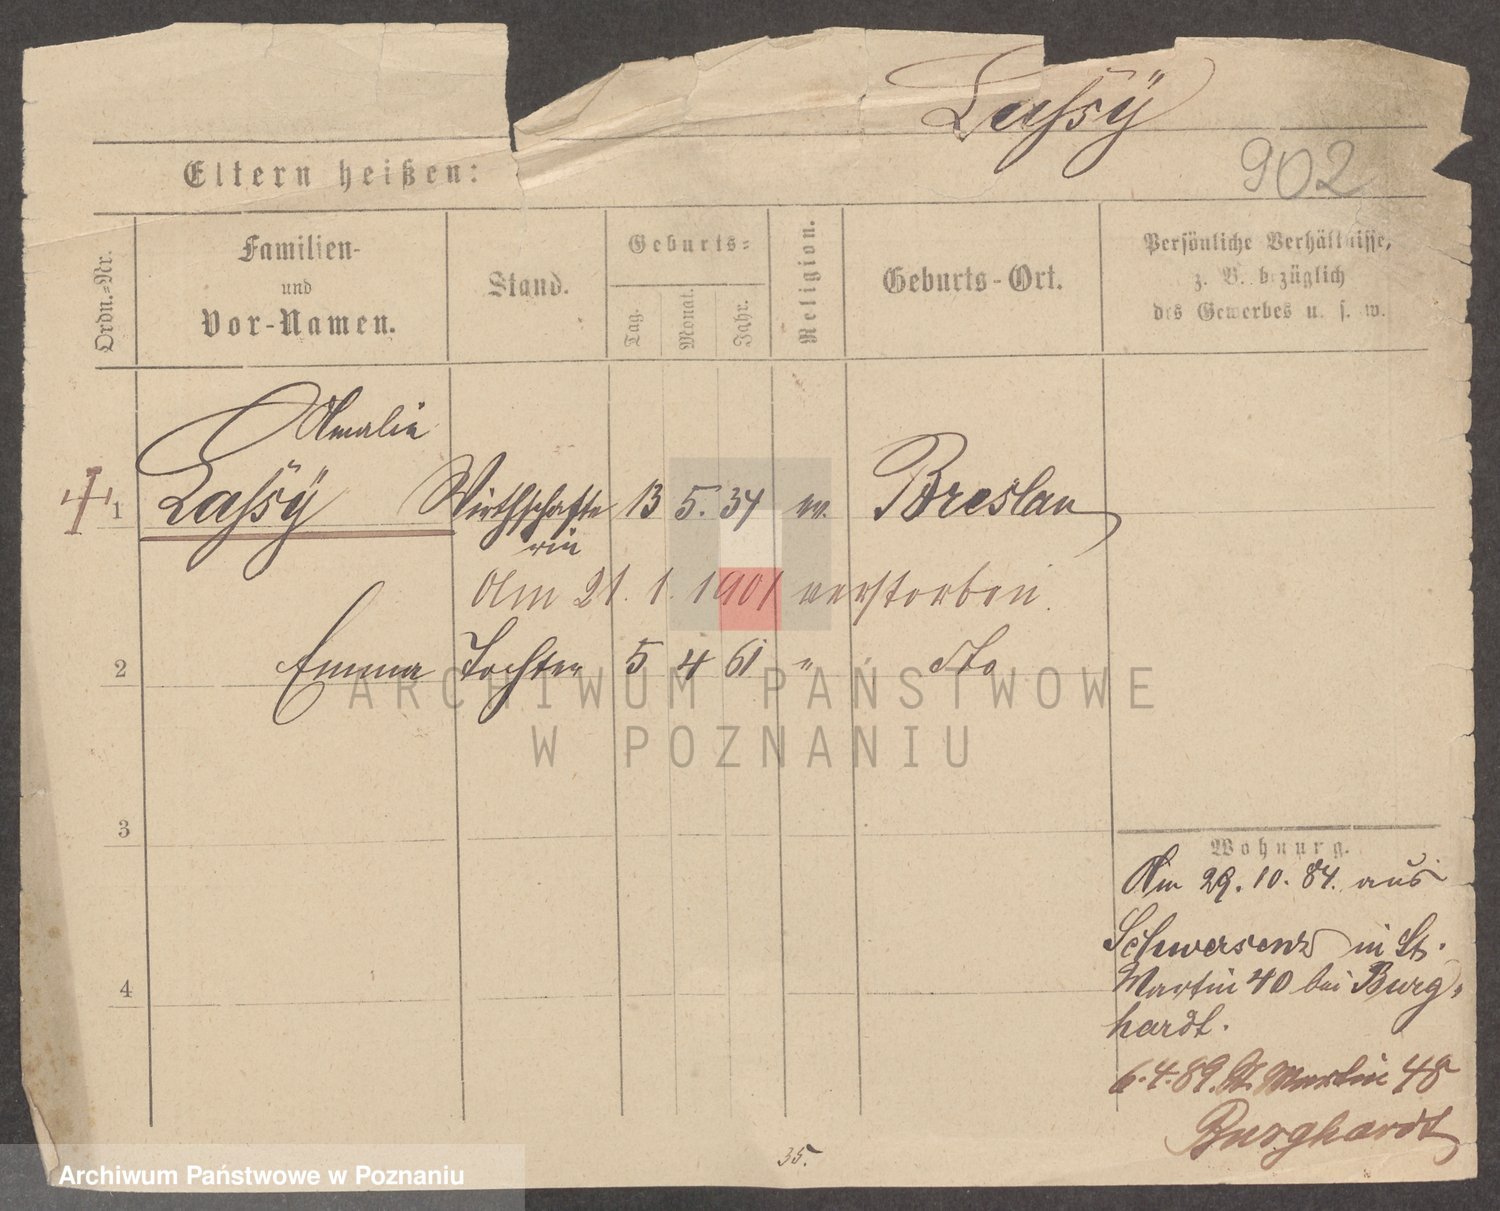 Laſsÿ
902
Eltern heißen:
Ordn.-Nr.
Familien-
und
Vor-Namen.
Stand.
Geburts-
Tag.
Monat.
Jahr.
Religion.
Geburts-Ort.
Persönliche Verhältnisse,
z. B. bezüglich
des Gewerbes u. s. w.
Amalie
1 Laſsÿ Wirthschafte 13 5. 34 Breslau
rin
Am 21. 1. 1901 verstorben.
2 Emma Tochter 5 4 61 " dto
3
4
Wohnung.
Am 29. 10. 84. aus
Schwersenz in St.
Martin 40 bei Burg-
hardt.
6.4.89. St. Martin 48
Burghardt
35.
ARCHIWUM PAŃSTWOWE
W POZNANIU
Archiwum Państwowe w Poznaniu